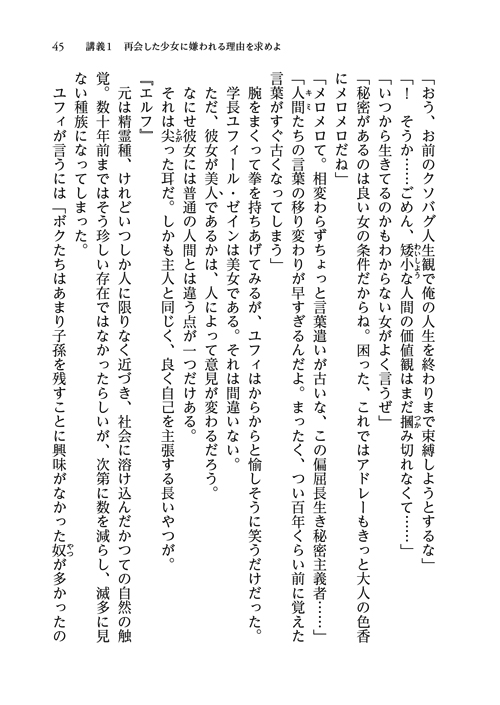 45　講義1　再会した少女に嫌われる理由を求めよ
「おう、お前のクソバグ人生観で俺の人生を終わりまで束縛しようとするな」
「！　そうか……ごめん、矮小な人間の価値観はまだ摑み切れなくて……」
「いつから生きてるのかもわからない女がよく言うぜ」
「秘密があるのは良い女の条件だからね。困った、これではアドレーもきっと大人の色香
にメロメロだね」
「メロメロて。相変わらずちょっと言葉遣いが古いな、この偏屈長生き秘密主義者……」
「人間たちの言葉の移り変わりが早すぎるんだよ。まったく、つい百年くらい前に覚えた
言葉がすぐ古くなってしまう」
　腕をまくって拳を持ちあげてみるが、ユフィはからからと愉しそうに笑うだけだった。
　学長ユフィール・ゼインは美女である。それは間違いない。
　ただ、彼女が美人であるかは、人によって意見が変わるだろう。
　なにせ彼女には普通の人間とは違う点が一つだけある。
　それは尖った耳だ。しかも主人と同じく、良く自己を主張する長いやつが。
『エルフ』
　元は精霊種、けれどいつしか人に限りなく近づき、社会に溶け込んだかつての自然の触
覚。数十年前まではそう珍しい存在ではなかったらしいが、次第に数を減らし、滅多に見
ない種族になってしまった。
　ユフィが言うには「ボクたちはあまり子孫を残すことに興味がなかった奴が多かったの